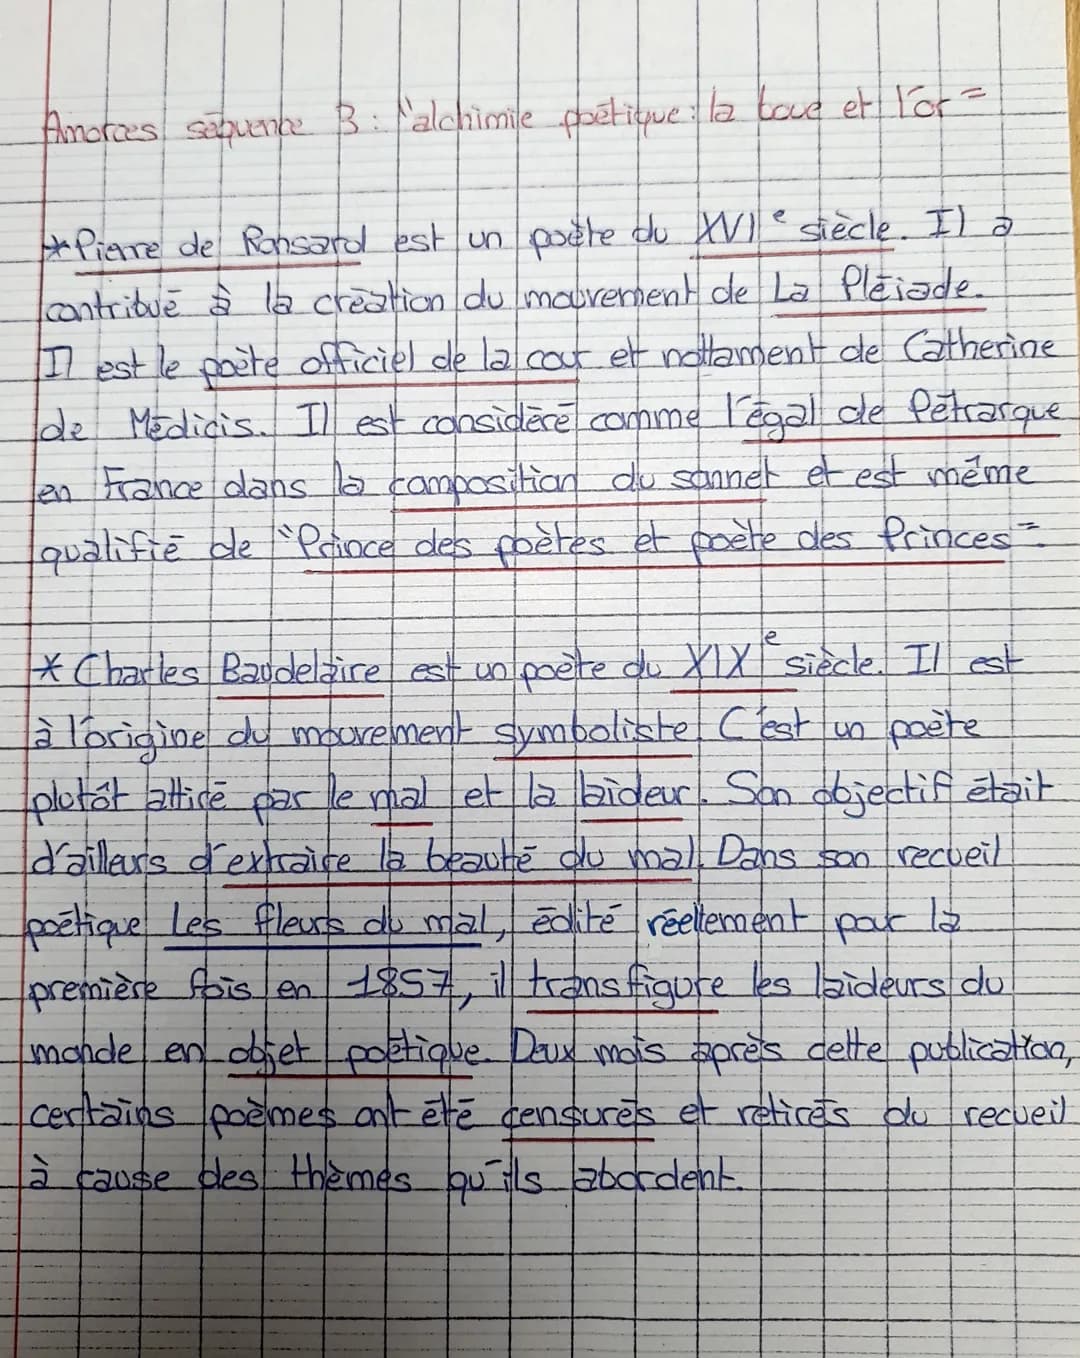 Amorces séquence 3 : l'alchimie poétique : la boue et l'or =
* Pierre de Ronsard est un poète du XVIe siècle. Il a
contribué à la création du mouvement de La Pléiade.
Il est le poète officiel de la cour et nottament de Catherine
de Médicis. Il est considéré comme l'égal de Pétrarque
en France dans la composition du sonnet et est même
qualifié de "Prince des poètes et poète des Princes"
* Charles Baudelaire est un poète du XIXe siècle. Il est
à l'origine du mouvement symboliste. C'est un poète
plutôt attiré par le mal et la laideur. Son objectif était
d'ailleurs d'extraire la beauté du mal. Dans son recueil
poétique Les fleurs du mal, édité réellement pour la
première fois en 1857, il transfigure les laideurs du
monde en objet poétique. Deux mois après cette publication,
certains poèmes ont été censurés et retirés du recueil
à cause des thèmes qu'ils abordent.